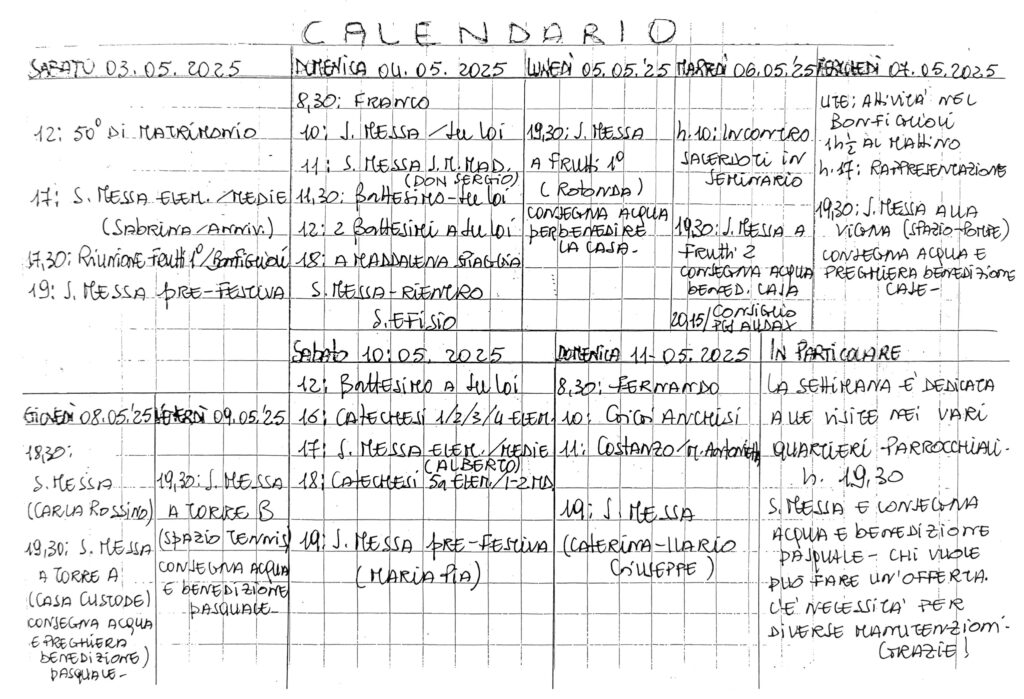 CALENDARIO
SABATO 03.05.2025
12: 50° DI MATRIMONIO
17: S. MESSA ELEM. / MEDIE
(SABRINA/ANNIV.)
17,30: RIUNIONE FRUTTI 1°/BONFIGLIOLI
19: S. MESSA PRE-FESTIVA
DOMENICA 04.05.2025
8,30: FRANCO
10: S. MESSA / SU LOI
11: S. MESSA S.M. MAD.
(DON SERGIO)
11,30: BATTESIMO-SU LOI
12: 2 BATTESIMI A SU LOI
18: A MADDALENA SPIAGGIA
S. MESSA-RIENTRO
S. EFISIO
LUNEDÌ 05.05.'25
19,30: S. MESSA
A FRUTTI 1°
(ROTONDA)
CONSEGNA ACQUA
PER BENEDIRE
LA CASA-
MARTEDÌ 06.05.'25
h. 10: INCONTRO
SACERDOTI IN
SEMINARIO
19,30: S. MESSA A
FRUTTI 2
CONSEGNA ACQUA
BENED. CASA
20,15/CONSIGLIO
PGS AUDAX
MERCOLEDÌ 07.05.2025
UTE: ATTIVITÀ NEL
BONFIGLIOLI
1h ½ AL MATTINO
h. 17: RAPPRESENTAZIONE
19,30: S. MESSA ALLA
VIGNA (SPAZIO-PONTE)
CONSEGNA ACQUA E
PREGHIERA BENEDIZIONE
CASE-
GIOVEDÌ 08.05.'25
18,30:
S. MESSA
(CARLA ROSSINO)
19,30: S. MESSA
A TORRE A
(CASA CUSTODE)
CONSEGNA ACQUA
E PREGHIERA
BENEDIZIONE)
PASQUALE-
VENERDÌ 09.05.'25
19,30: S. MESSA
A TORRE B
(SPAZIO TENNIS)
CONSEGNA ACQUA
E BENEDIZIONE
PASQUALE-
SABATO 10.05.2025
12: BATTESIMO A SU LOI
16: CATECHESI 1/2/3/4 ELEM.
17: S. MESSA ELEM./MEDIE
(ALBERTO)
18: CATECHESI 5a ELEM./1-2 MD.
19: S. MESSA PRE-FESTIVA
(MARIA PIA)
DOMENICA 11-05.2025
8,30: FERNANDO
10: COICOI ANCHISI
11: COSTANZO/M. ANTONIETTA
19: S. MESSA
(CATERINA-ILARIO
GIUSEPPE)
IN PARTICOLARE
LA SETTIMANA E' DEDICATA
ALLE VISITE NEI VARI
QUARTIERI PARROCCHIALI-
h. 19,30
S. MESSA E CONSEGNA
ACQUA E BENEDIZIONE
PASQUALE- CHI VUOLE
PUÒ FARE UN'OFFERTA.
C'È NECESSITÀ PER
DIVERSE MANUTENZIONI-
GRAZIE!